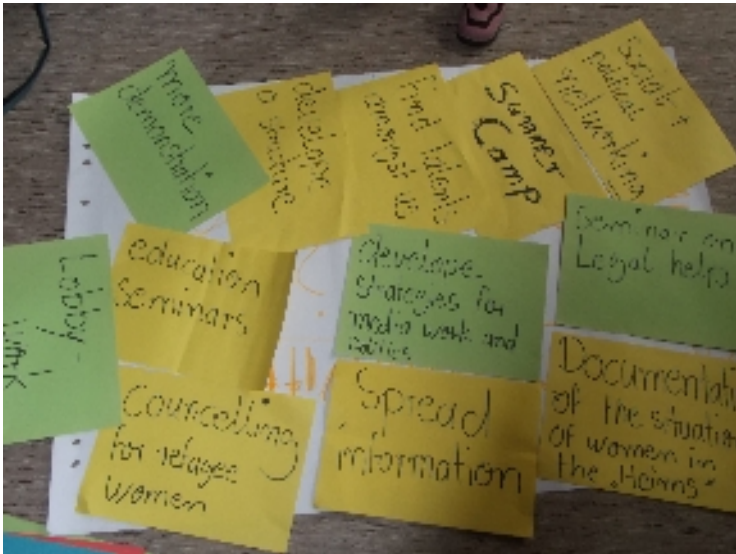 more
demonstration
develope
a structure
Find talents
amongst us
Summer
Camp
Social +
political
networking
Lobby-
work
education
seminars
develope
strategies for
media work and
Seminar on
Legal helps
Councelling
for refugee
women
Spread
information
Documentati
of the situatio
of women in
the „Heims"